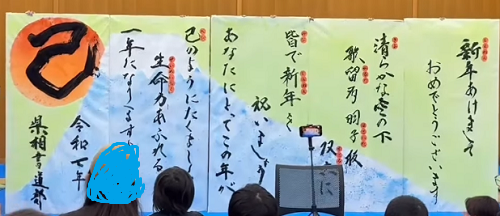 新年あけまして
おめでとうございます
清らかな空の下
歌留多 羽子板
双六に
皆で新年を
祝いましょう
あなたにとってこの年が
巳のようにたくまし
生命力あふれる
一年になりますよ
令和七年
県相書道部
巳